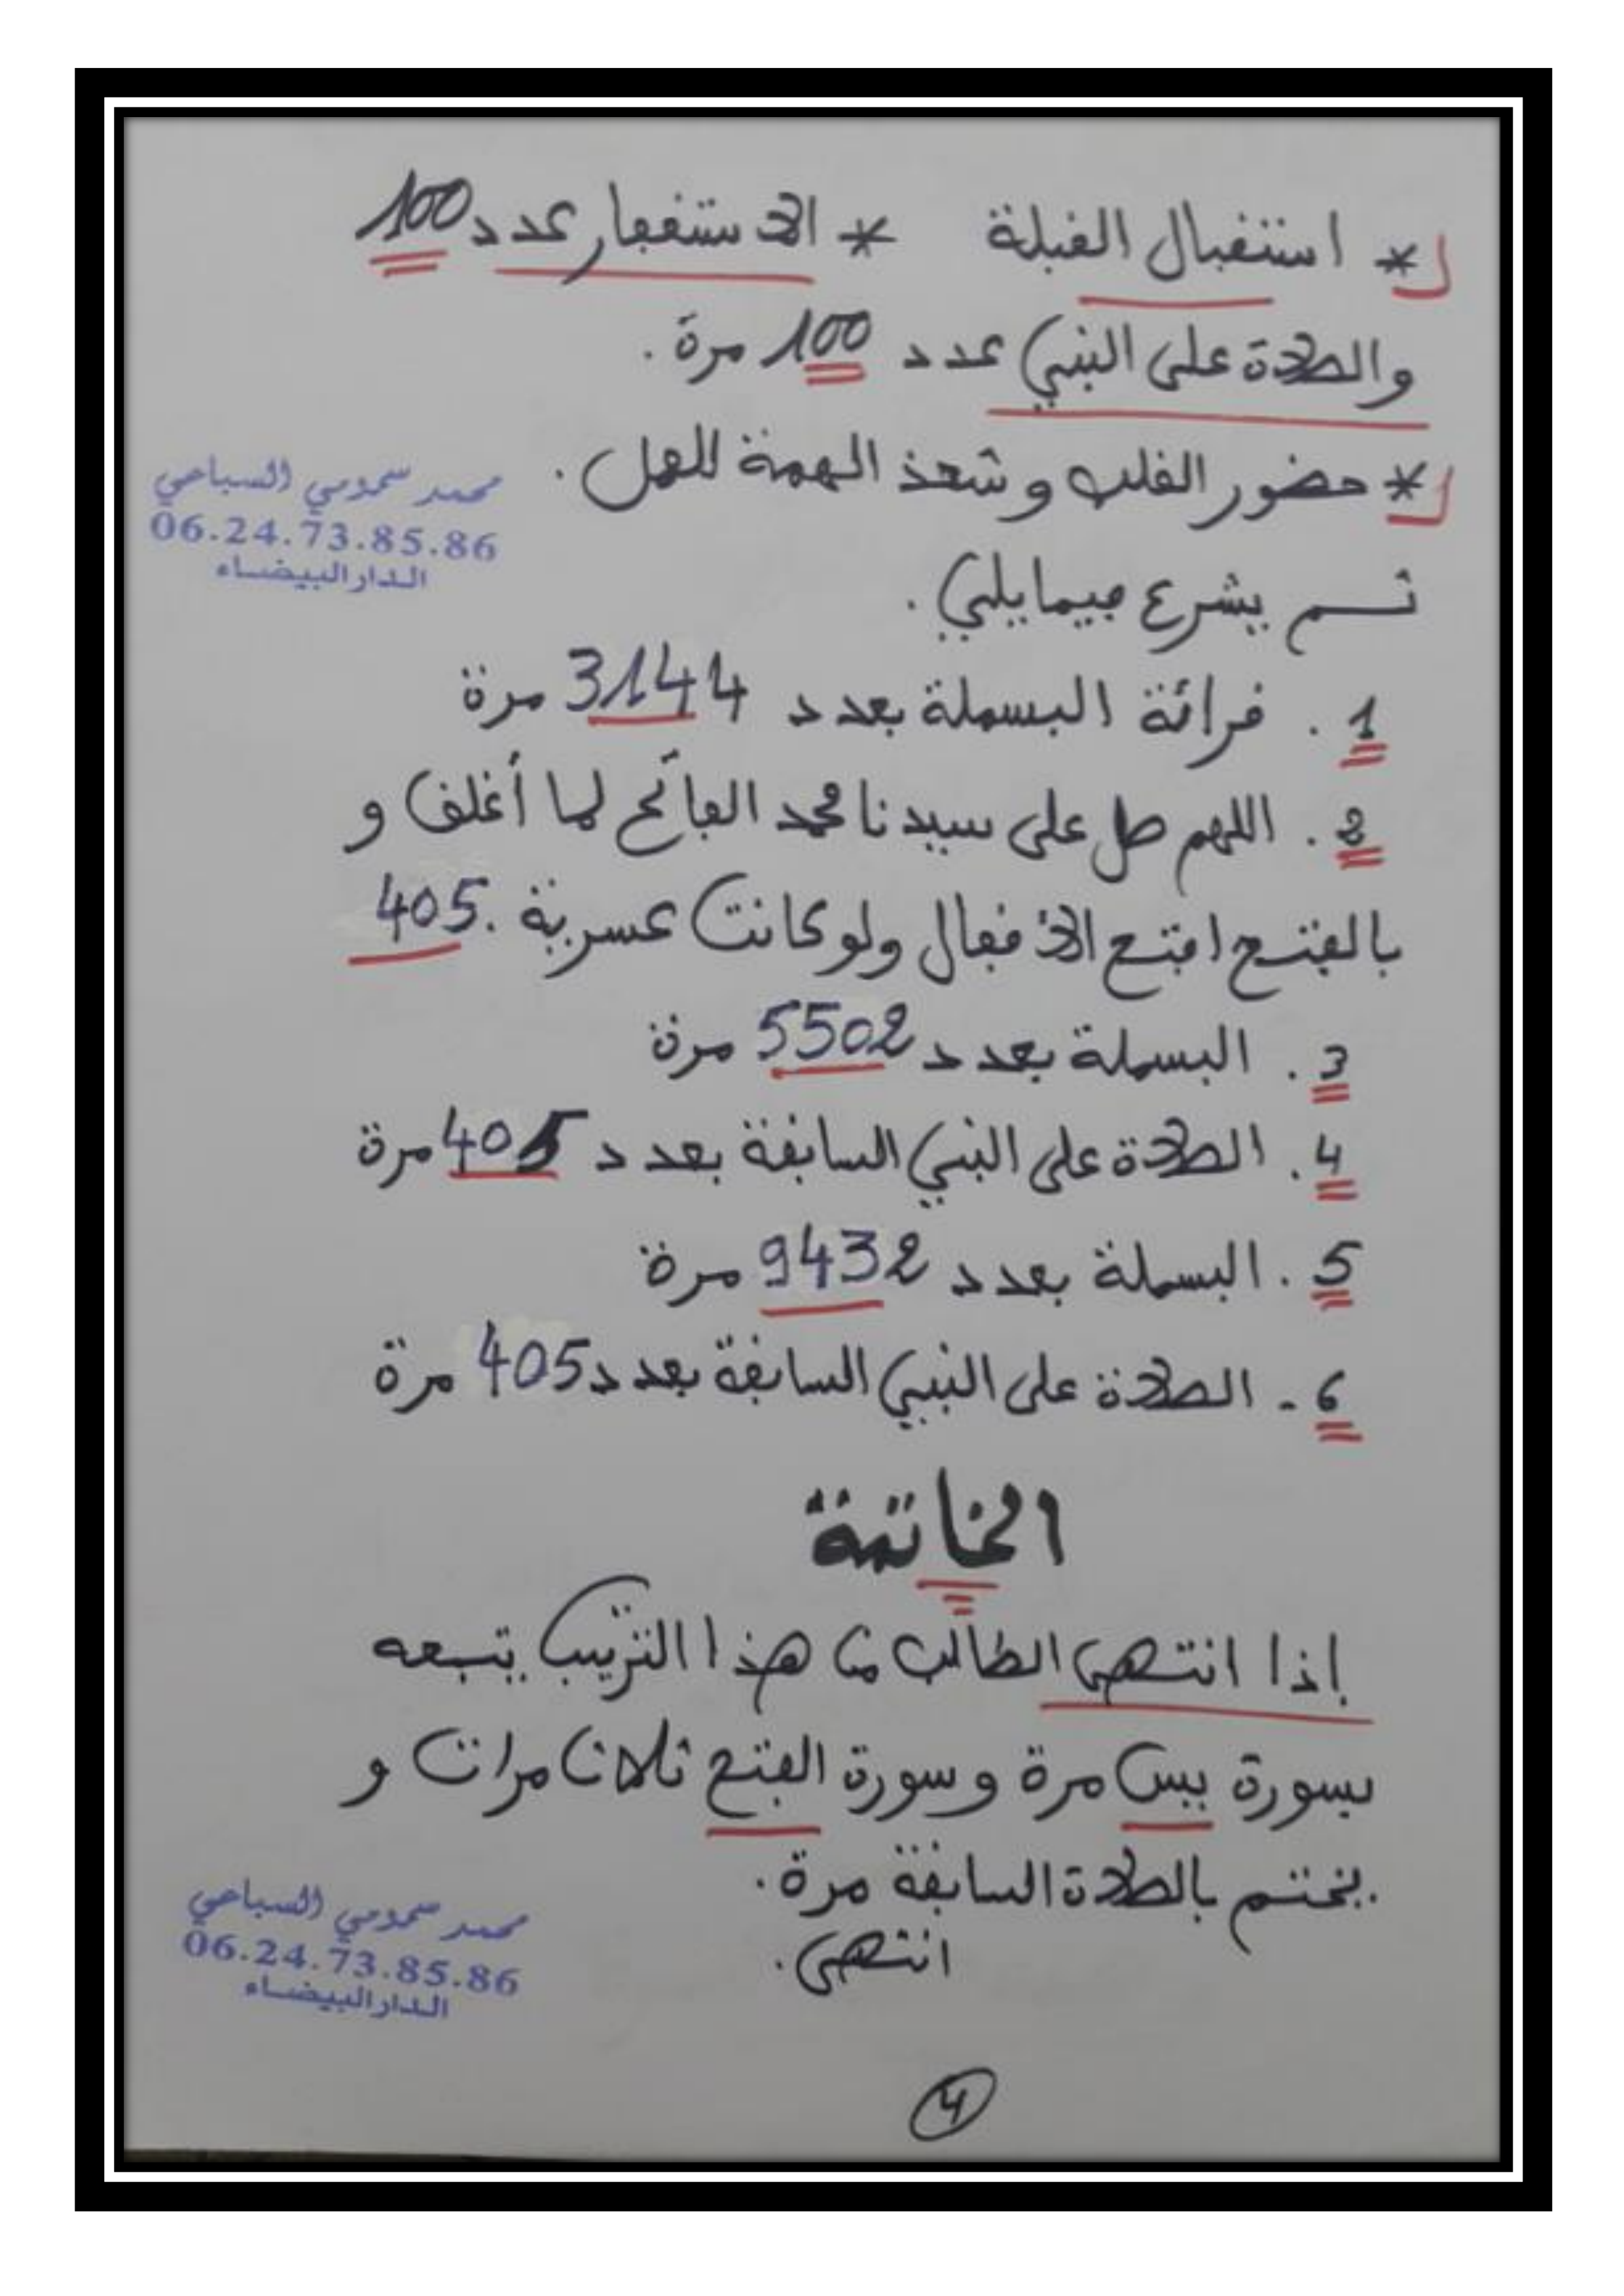 * استقبال القبلة * الاستغفار عدد 100
والصلاة على النبي عدد 100 مرة .
* حضور القلب و شحذ الهمة للعمل .
محمد سمومي السباعي
06.24.73.85.86
الدار البيضاء
ثم يشرع فيما يلي .
1 . قرائة البسملة بعدد 3144 مرة
2 . اللهم صل على سيدنا محمد الفاتح لما أغلق و
بالفتح افتح الأقفال ولو كانت عسرية . 405
3 . البسملة بعدد 5502 مرة
4 . الصلاة على النبي السابقة بعدد 405 مرة
5 . البسملة بعدد 9432 مرة
6 - الصلاة على النبي السابقة بعدد 405 مرة
الخاتمة
إذا انتهى الطالب من هذا الترتيب يتبعه
بسورة يس مرة و سورة الفتح ثلاث مرات و
يختم بالصلاة السابقة مرة .
انتهى .
محمد سمومي السباعي
06.24.73.85.86
الدار البيضاء
4